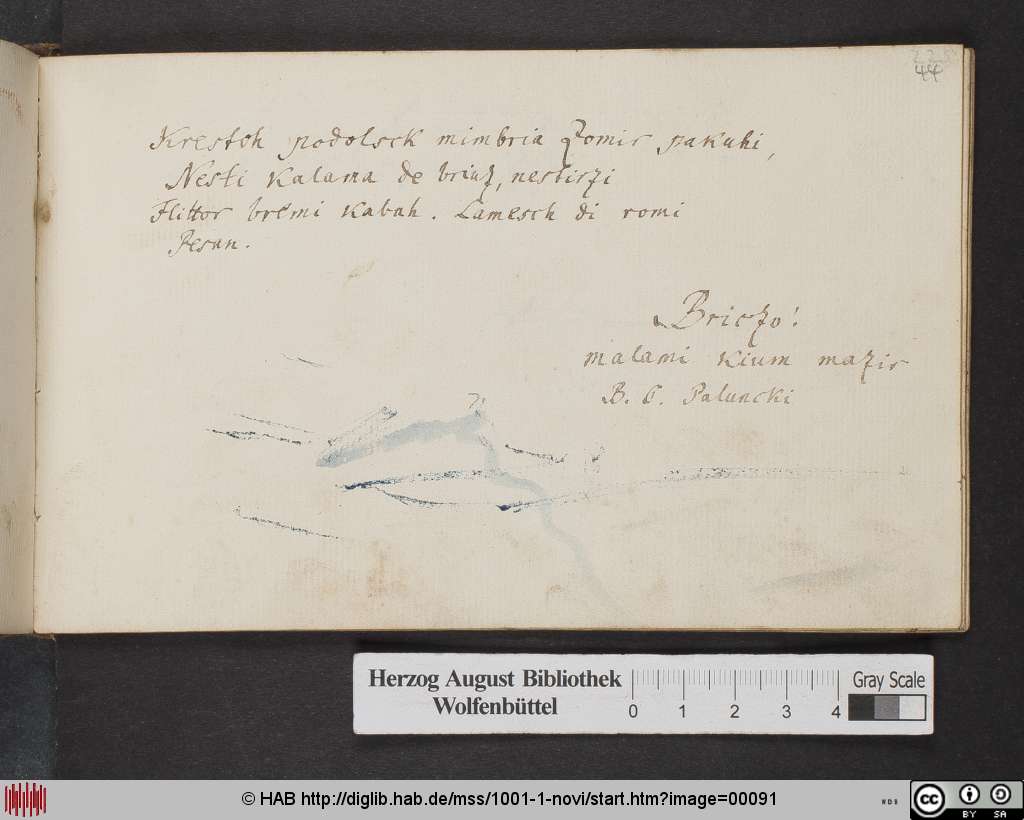 44
Krestoh podolsck mimbria Zomir pakuhi,
Nesti Kalama de briuz, nestirzi
Flittor bremi Kabah. Lamesch di romi
Pesan.
Briczo!
malami Kium mazir
B. C. Paluncki
Herzog August Bibliothek
Wolfenbüttel
Gray Scale
0 1 2 3 4
© HAB http://diglib.hab.de/mss/1001-1-novi/start.htm?image=00091
cc BY SA